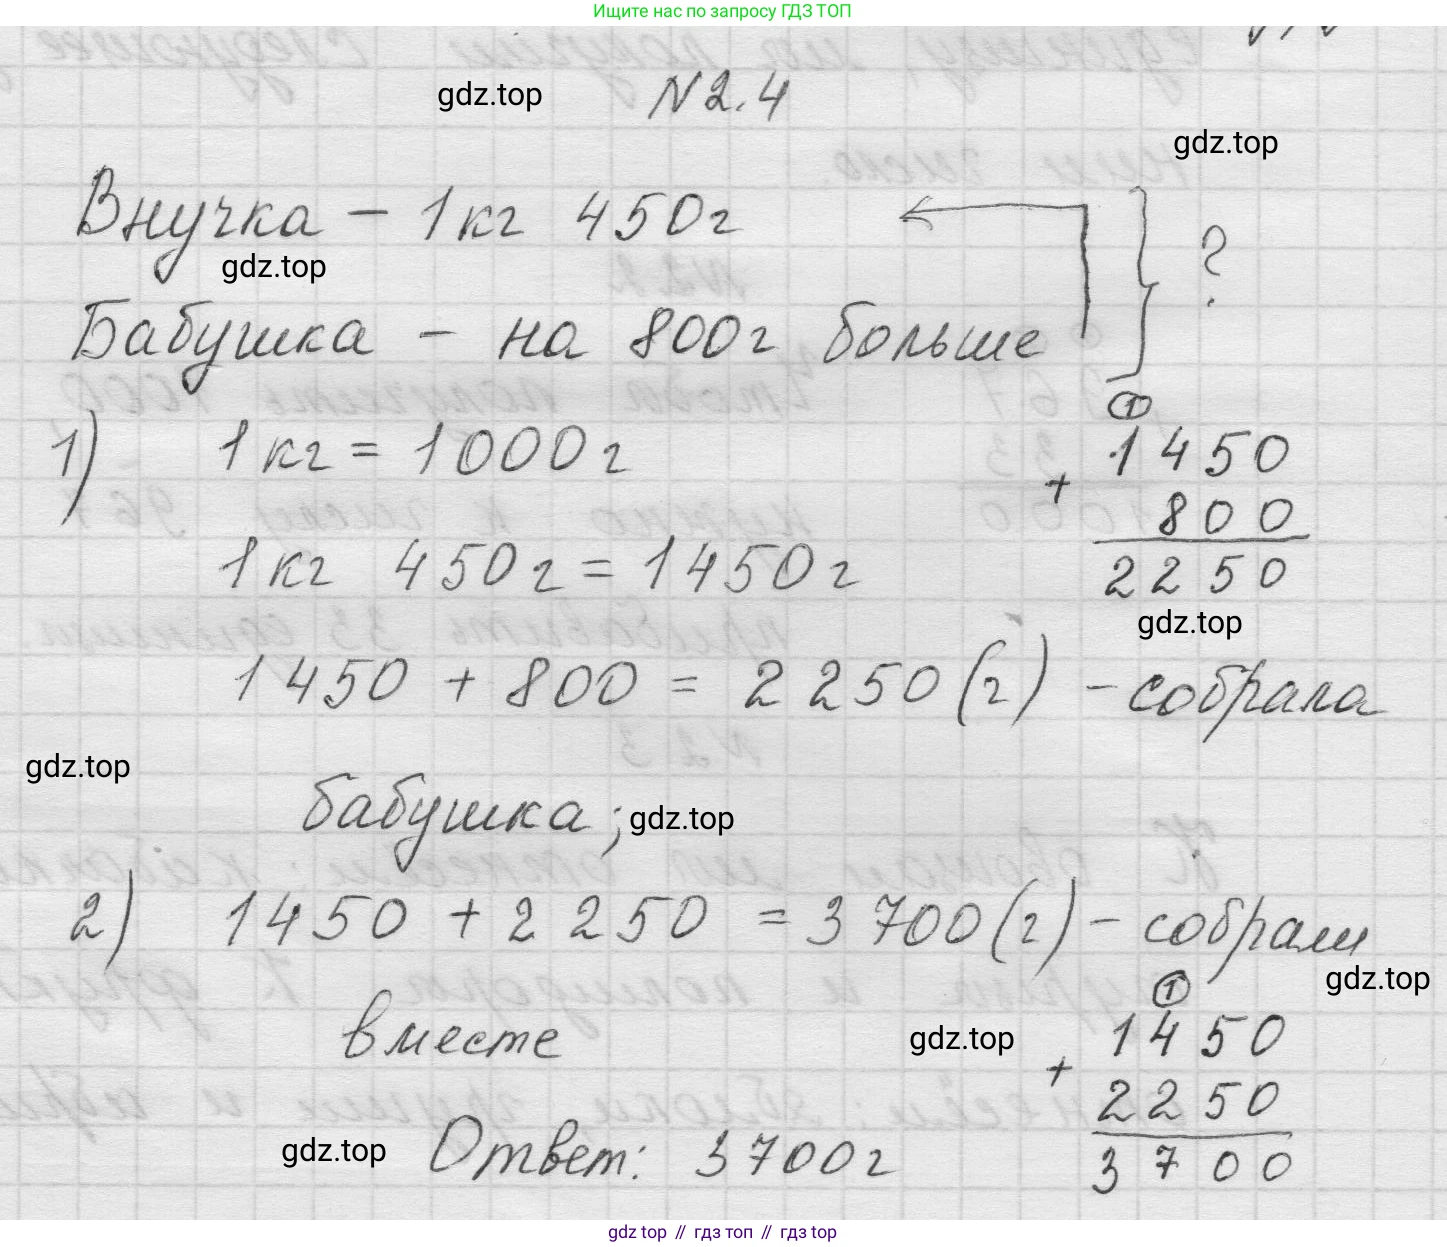 Ищите нас по запросу ГДЗ ТОП
gdz.top
N 2.4
gdz.top
Внучка – 1 кг 450 г
?
gdz.top
Бабушка – на 800 г больше
1) 1 кг = 1000 г
1
1450
+
800
2250
1 кг 450 г = 1450 г
gdz.top
1450 + 800 = 2250 (г) – собрала
gdz.top
бабушка;
gdz.top
2) 1450 + 2250 = 3700 (г) – собрали
gdz.top
вместе
gdz.top
1
1450
+
2250
3700
gdz.top
Ответ: 3700 г
gdz top // гдз топ // гдз top